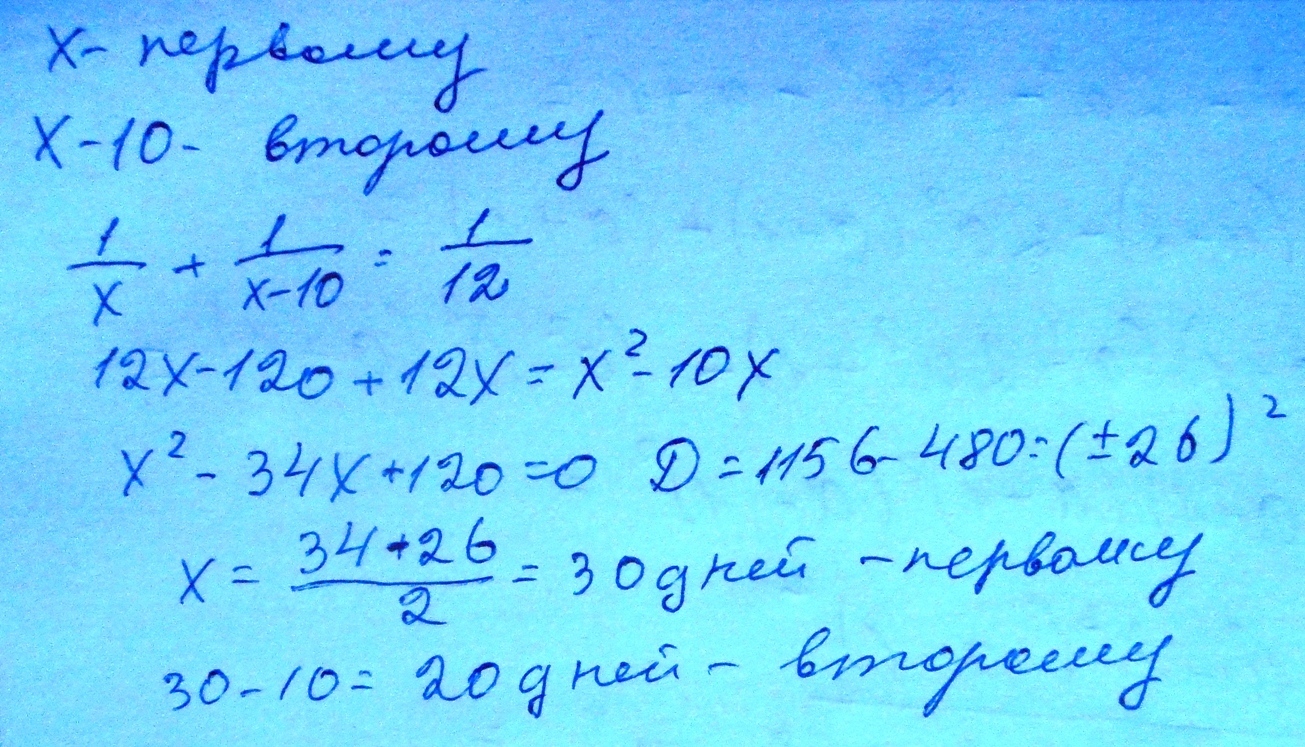 x - первому
x - 10 - второму
1/x + 1/(x-10) = 1/12
12x - 120 + 12x = x² - 10x
x² - 34x + 120 = 0 D = 1156 - 480 = (±26)²
x = (34+26)/2 = 30 дней - первому
30 - 10 = 20 дней - второму